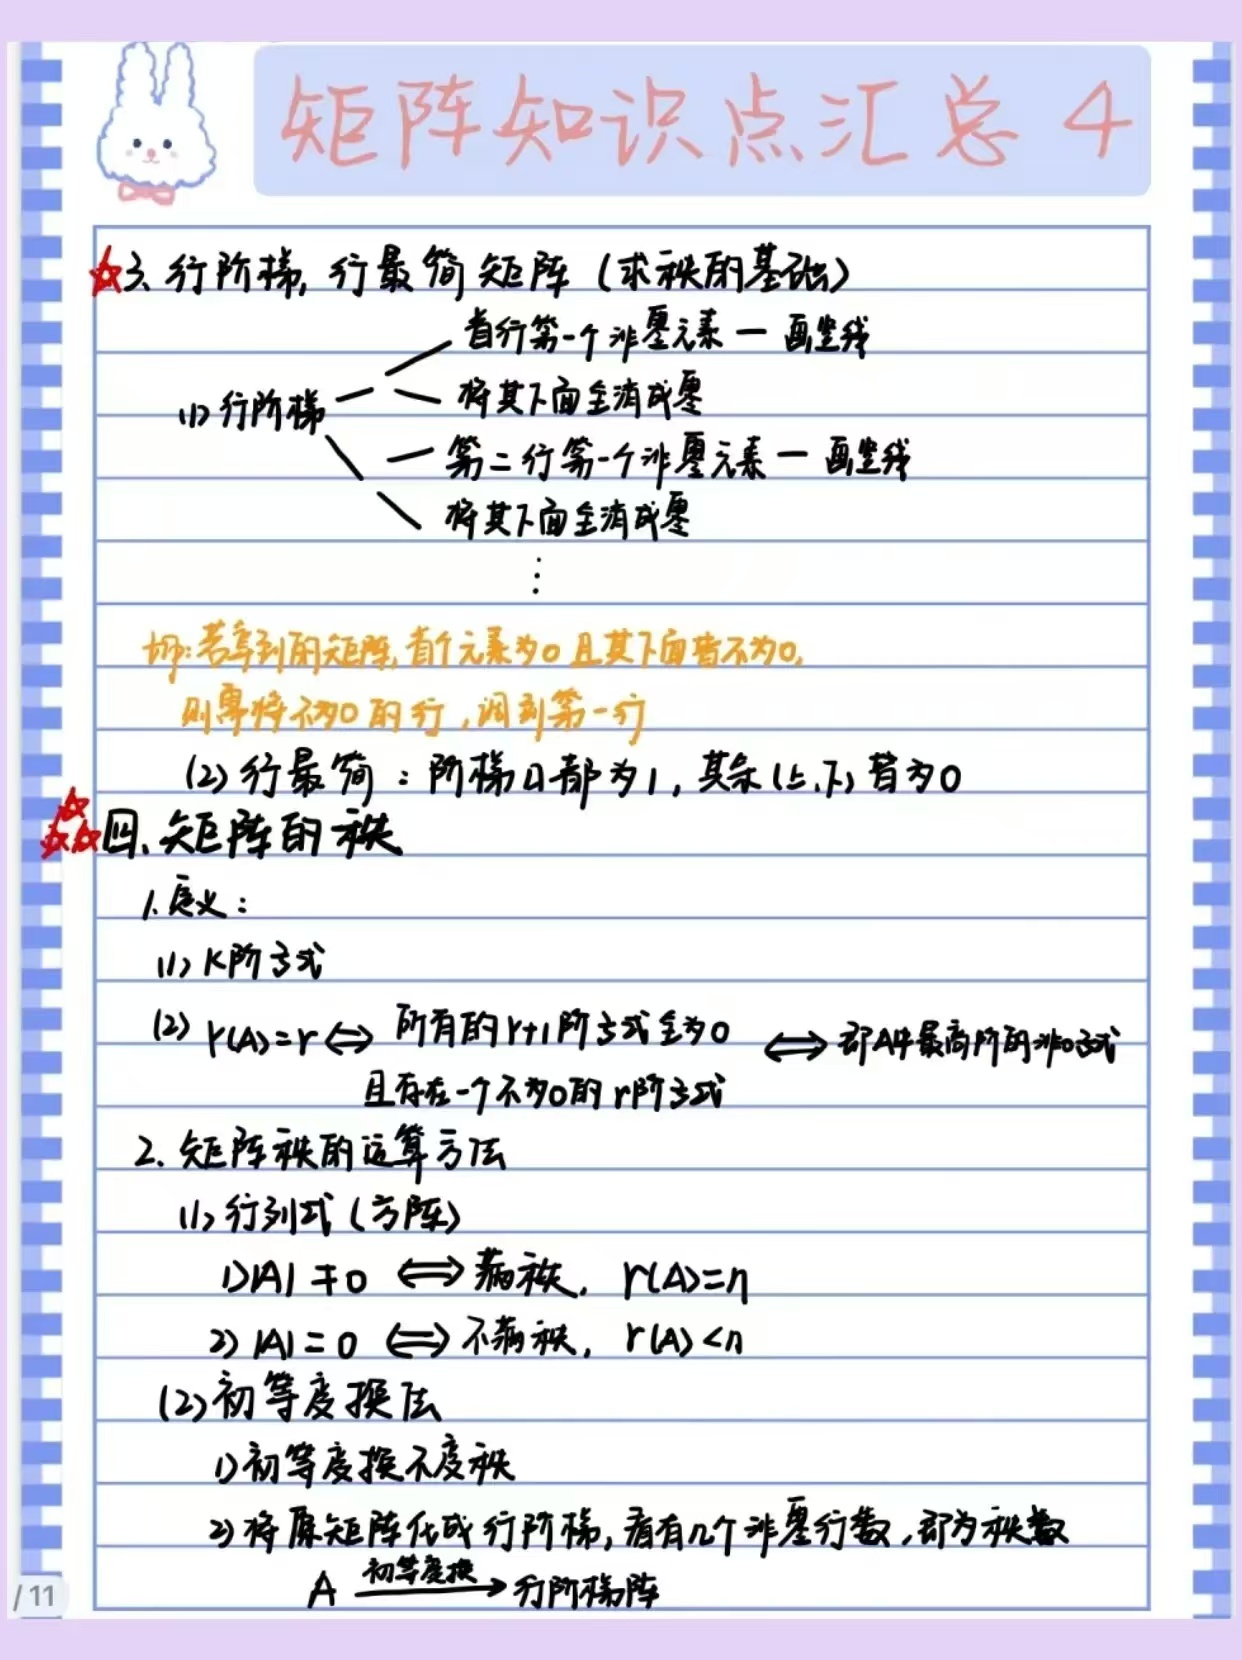 矩阵知识点汇总 4
3. 行阶梯, 行最简矩阵 (求秩的基础)
首行第一个非零元素 — 画竖线
(1) 行阶梯
将其下面全消成零
第二行第一个非零元素 — 画竖线
将其下面全消成零
⋮
若拿到的矩阵, 首个元素为0 且其下面皆不为0,
则需将不为0的行, 调到第一行
(2) 行最简: 阶梯口都为1, 其余(上、下)皆为0
四. 矩阵的秩
1. 定义:
(1) K阶子式
(2) r(A)=r ⇔ 所有的r+1阶子式全为0 ⇔ 即A中最高阶的非0子式
且存在一个不为0的r阶子式
2. 矩阵秩的运算方法
(1) 行列式 (方阵)
1) |A| ≠ 0 ⇔ 满秩, r(A)=n
2) |A| = 0 ⇔ 不满秩, r(A)<n
(2) 初等变换法
1) 初等变换不变秩
2) 将原矩阵化成行阶梯, 看有几个非零行数, 即为秩数
初等变换
A → 行阶梯阵
/11